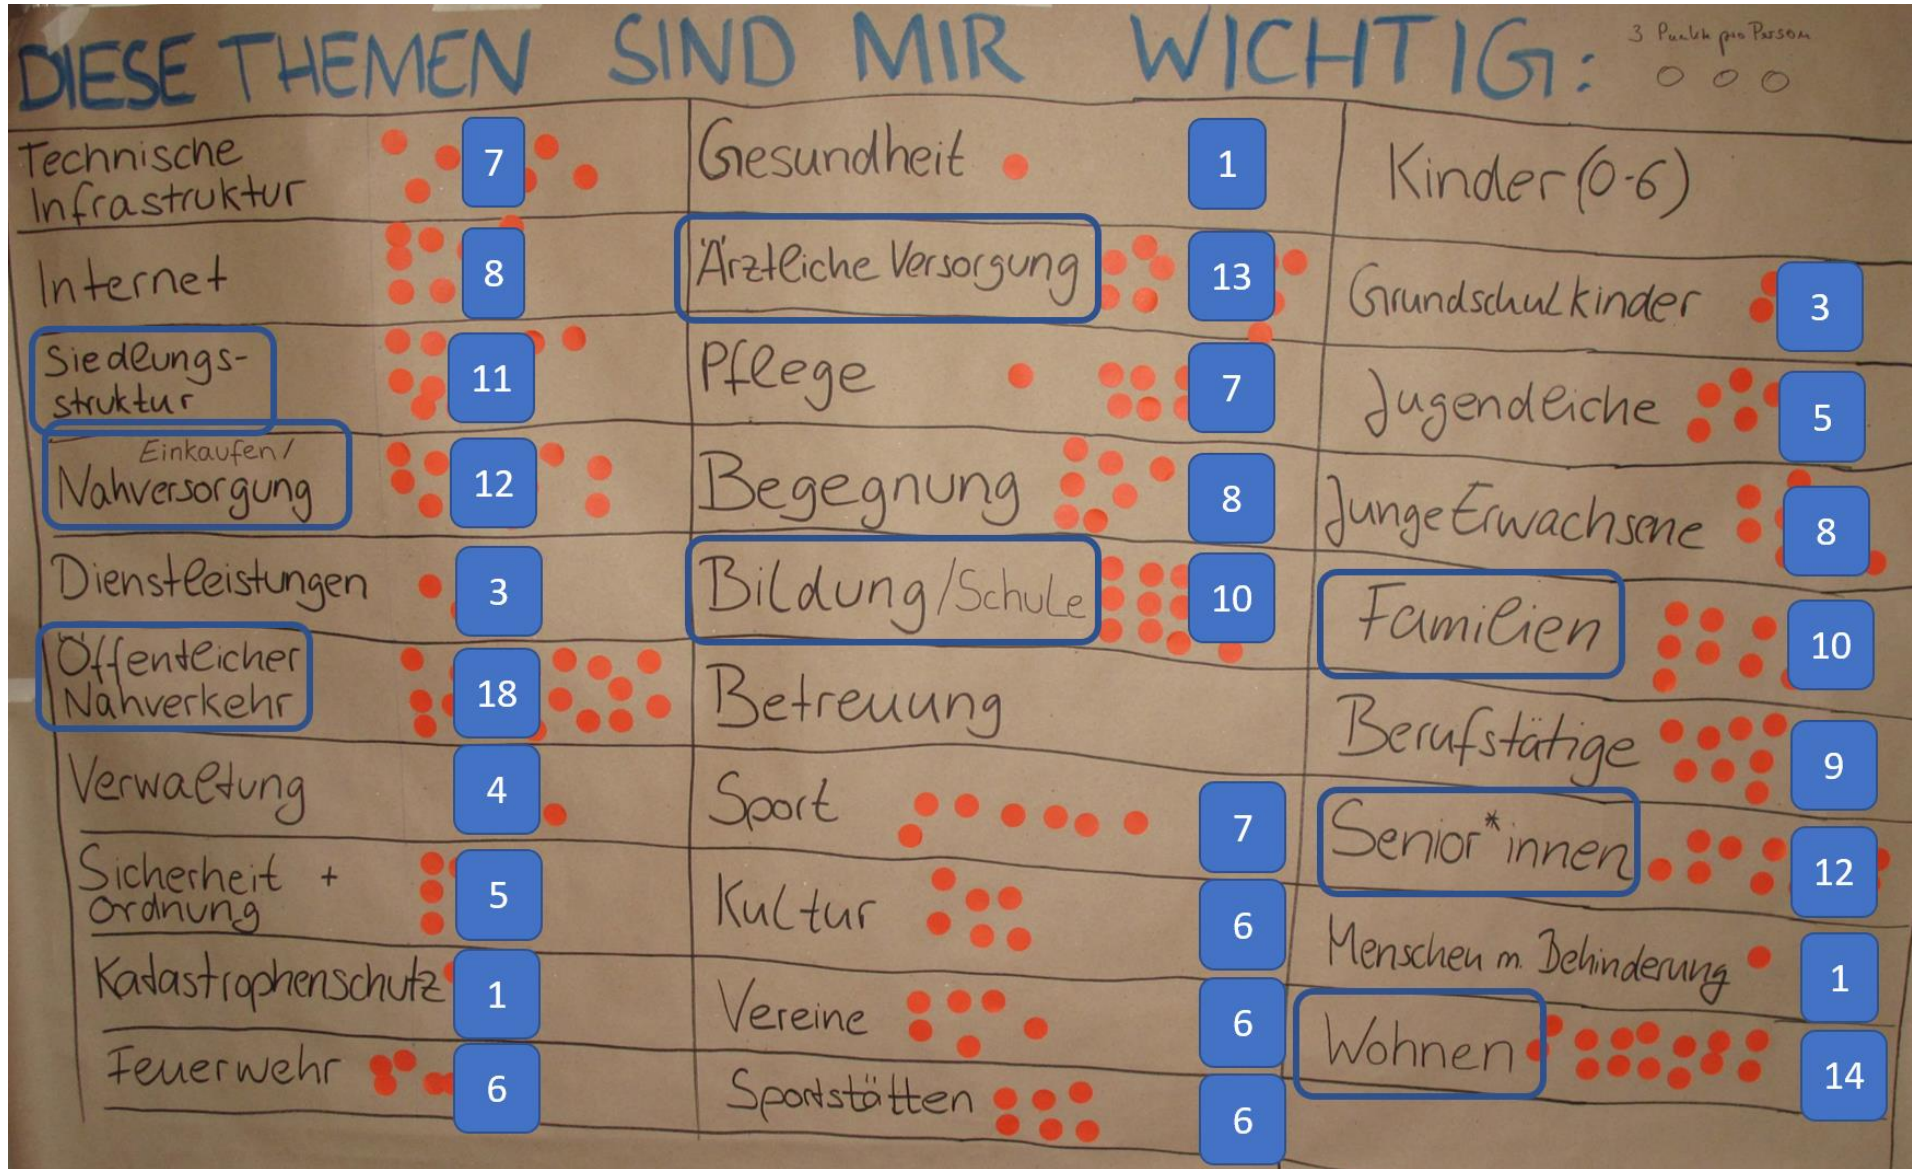 DIESE THEMEN SIND MIR WICHTIG:
3 Punkte pro Person
Technische
Infrastruktur
7
Internet
8
Siedlungs-
struktur
11
Einkaufen/
Nahversorgung
12
Dienstleistungen
3
Öffentlicher
Nahverkehr
18
Verwaltung
4
Sicherheit +
Ordnung
5
Katastrophenschutz
1
Feuerwehr
6
Gesundheit
1
Ärztliche Versorgung
13
Pflege
7
Begegnung
8
Bildung/Schule
10
Betreuung
Sport
7
Kultur
6
Vereine
6
Sportstätten
6
Kinder (0-6)
Grundschulkinder
3
Jugendliche
5
Junge Erwachsene
8
Familien
10
Berufstätige
9
Senior*innen
12
Menschen m. Behinderung
1
Wohnen
14